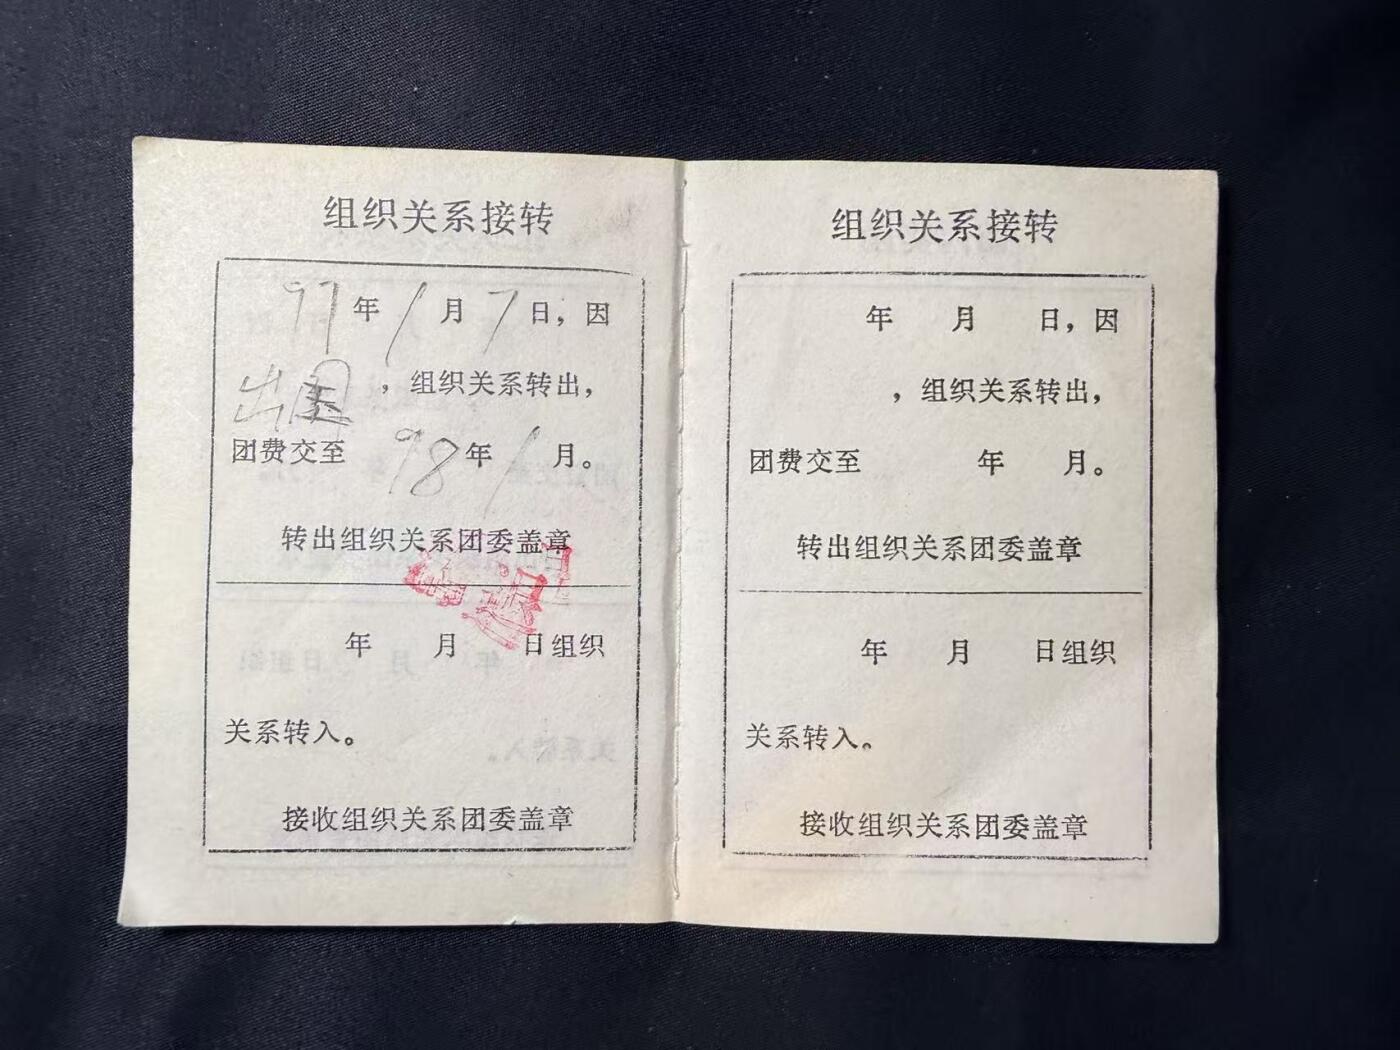 组织关系接转
97年1月7日，因
出国，组织关系转出，
团费交至98年1月。
转出组织关系团委盖章
年 月 日组织
关系转入。
接收组织关系团委盖章
组织关系接转
年 月 日，因
，组织关系转出，
团费交至 年 月。
转出组织关系团委盖章
年 月 日组织
关系转入。
接收组织关系团委盖章